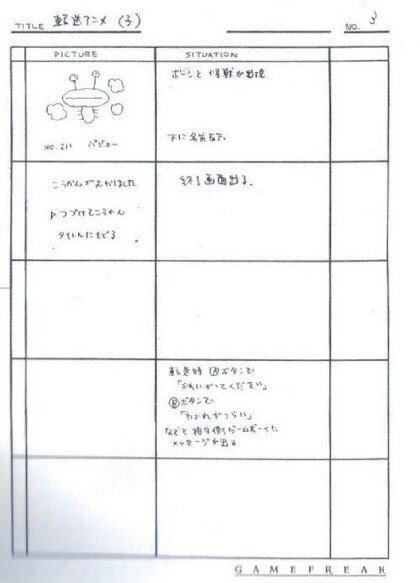 TITLE 転送アニメ (3)
NO. 3
PICTURE
SITUATION
ボーンと 怪獣が出現
NO.211
下に名前表示
こうかんがおわりました
終了画面出る。
▷つづけてこうかん
タイトルにもどる
転送時 Ⓐボタンで
「かわいがってください」
Ⓑボタンで
「わかれがつらい」
などと相手側ゲームボーイに
メッセージが出る
GAMEFREAK